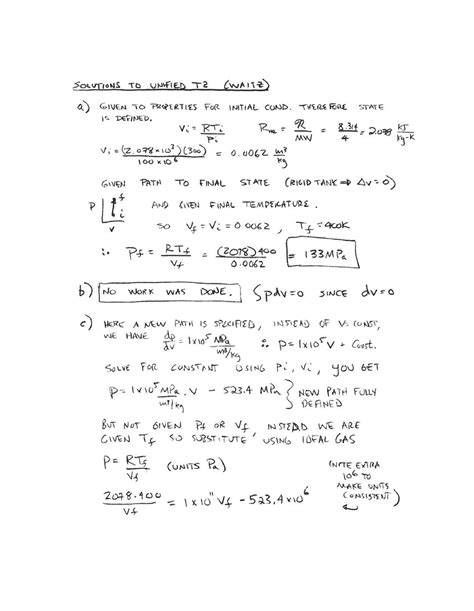 SOLUTIONS TO UNIFIED T2 (WAITZ)
a) GIVEN TO PROPERTIES FOR INITIAL COND. THEREFORE STATE
IS DEFINED.
Vi = RTi / Pi   RHe = ℛ / MW = 8.314 / 4 = 2.078 kJ / kg-K
Vi = (2.078×10³)(300) / 100×10⁶ = 0.0062 m³/kg
GIVEN PATH TO FINAL STATE (RIGID TANK ⇒ ΔV=0)
P f i v AND GIVEN FINAL TEMPERATURE.
SO Vf = Vi = 0.0062, Tf = 400K
∴ Pf = RTf / Vf = (2078)400 / 0.0062 = 133MPa
b) NO WORK WAS DONE. ∫pdv=0 SINCE dv=0
c) HERE A NEW PATH IS SPECIFIED, INSTEAD OF V=CONST,
WE HAVE dp/dv = 1×10⁵ MPa / m³/kg ∴ P=1×10⁵V + Const.
SOLVE FOR CONSTANT USING Pi, Vi, YOU GET
P = 1×10⁵ MPa / m³/kg · V - 523.4 MPa } NEW PATH FULLY
DEFINED
BUT NOT GIVEN Pf OR Vf, INSTEAD WE ARE
GIVEN Tf SO SUBSTITUTE USING IDEAL GAS
P = RTf / Vf (UNITS Pa)
(NOTE EXTRA
10⁶ TO
MAKE UNITS
CONSISTENT)
2078·400 / Vf = 1×10¹¹ Vf - 523.4×10⁶